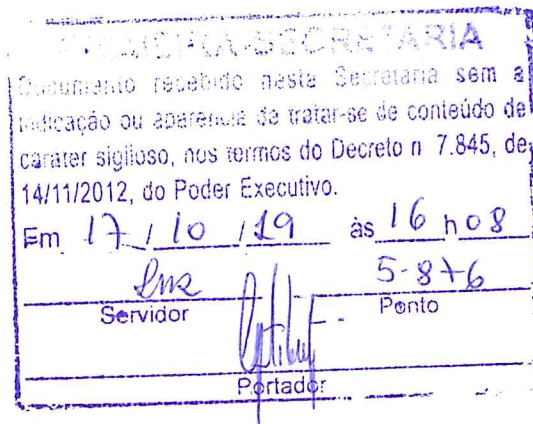 PRIMEIRA-SECRETARIA
Documento recebido nesta Secretaria sem a
indicação ou aparência de tratar-se de conteúdo de
carater sigiloso, nos termos do Decreto n 7.845, de
14/11/2012, do Poder Executivo.
Em 17 / 10 / 19 às 16 h 08
5-876
Servidor Ponto
Portador